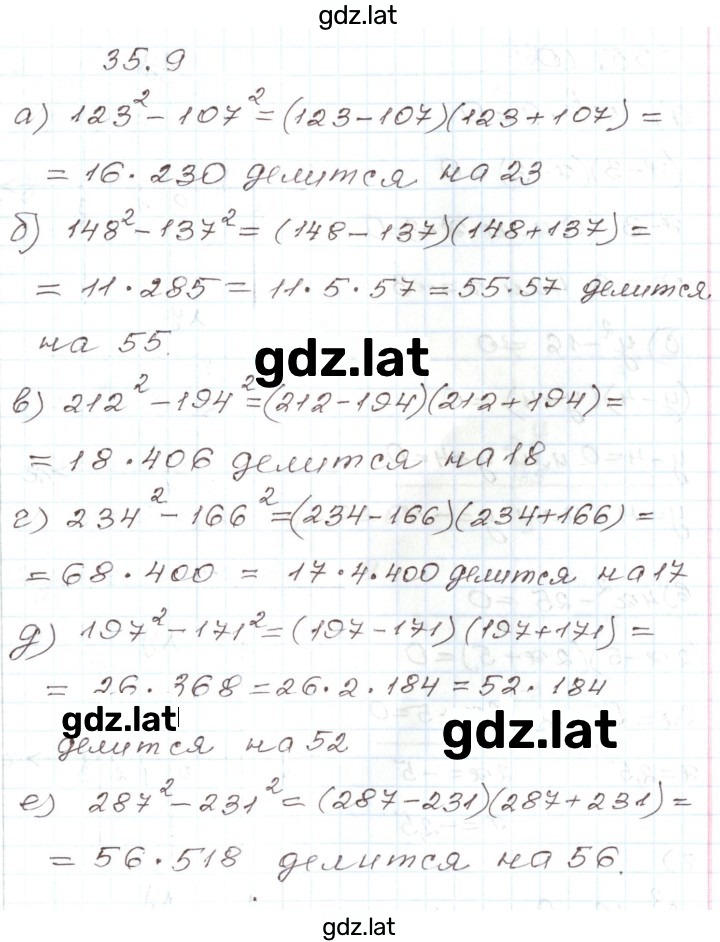 gdz.lat
35.9
а) 123² - 107² = (123-107)(123+107) =
= 16 · 230 делится на 23
б) 148² - 137² = (148-137)(148+137) =
= 11 · 285 = 11 · 5 · 57 = 55 · 57 делится
на 55.
gdz.lat
в) 212² - 194² = (212-194)(212+194) =
= 18 · 406 делится на 18
г) 234² - 166² = (234-166)(234+166) =
= 68 · 400 = 17 · 4 · 400 делится на 17
д) 197² - 171² = (197-171)(197+171) =
= 26 · 368 = 26 · 2 · 184 = 52 · 184
gdz.lat
gdz.lat
делится на 52
е) 287² - 231² = (287-231)(287+231) =
= 56 · 518 делится на 56.
gdz.lat